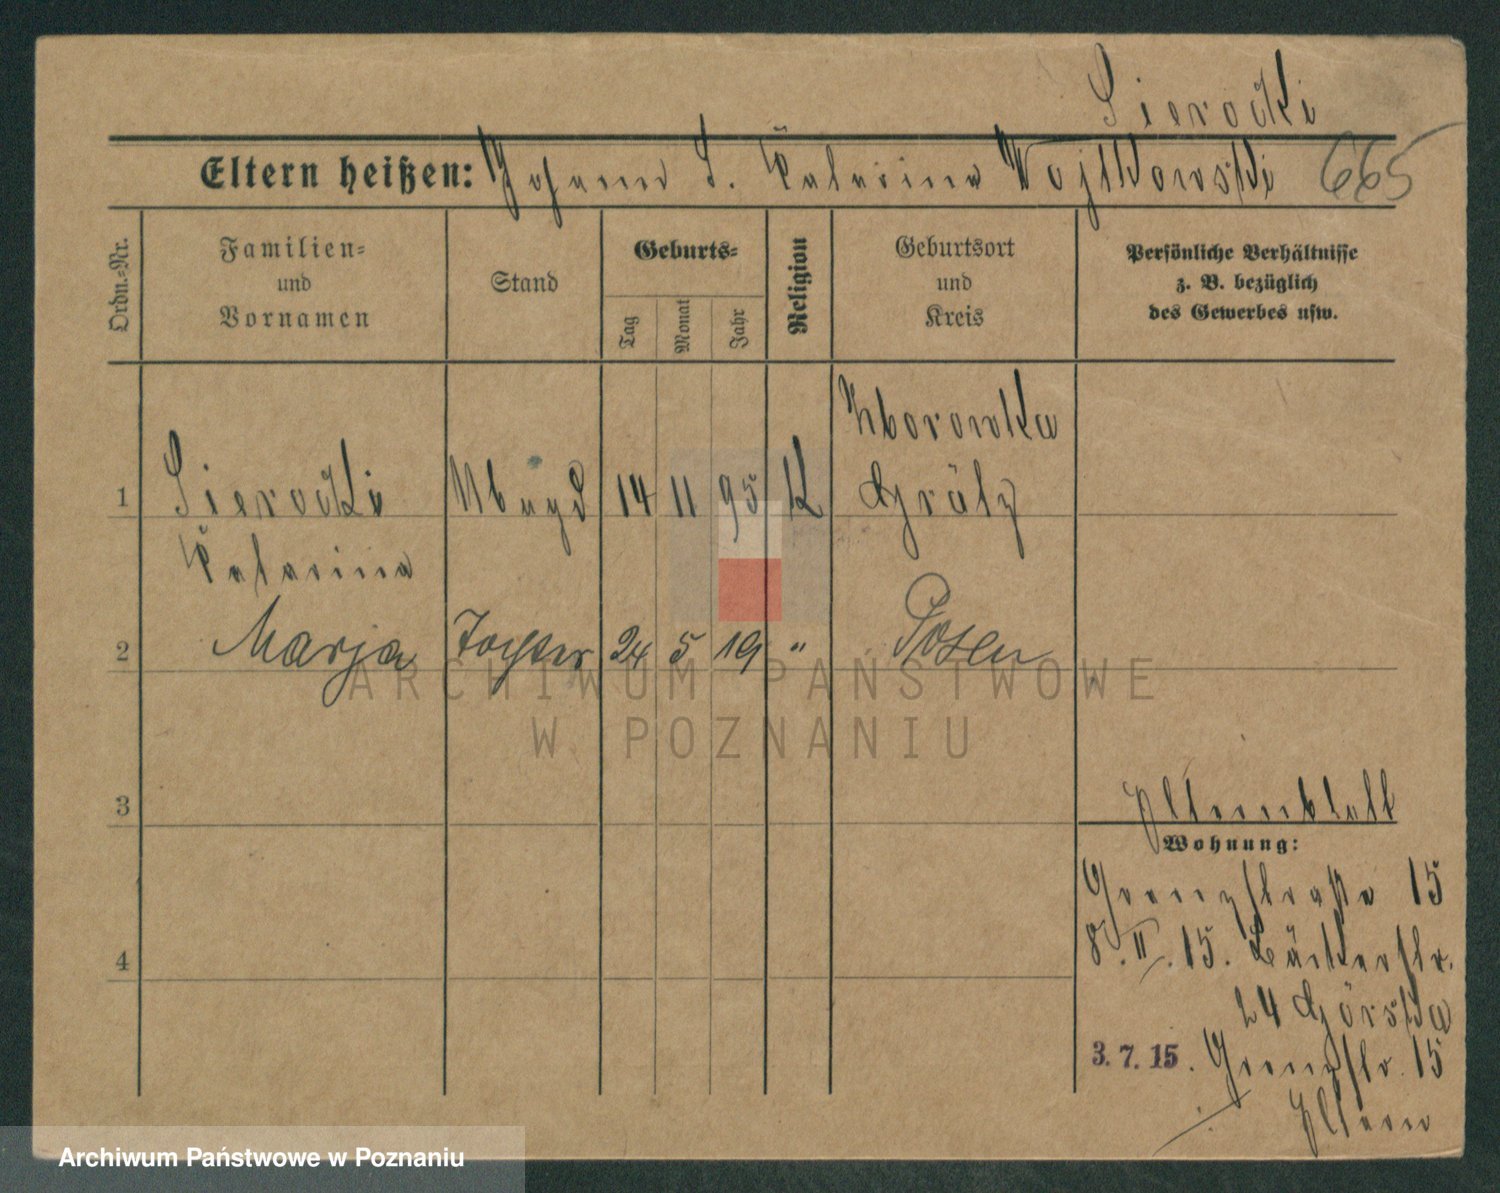 Sierocki
Eltern heißen: Johann S. Katarina Wojtkowski 665
Ordn.=Nr.
Familien=
und
Vornamen
Stand
Geburts=
Tag
Monat
Jahr
Religion
Geburtsort
und
Kreis
Persönliche Verhältnisse
z. B. bezüglich
des Gewerbes usw.
Zborowka
1 Sierocki Magd 14 11 95 K Grätz
Katarina
2 Marja Tochter 24 5 19 " Posen
ARCHIWUM PAŃSTWOWE
W POZNANIU
3
Elternblatt
Wohnung:
Grenzstraße 15
4
8. II. 15. Bäckerstr.
24 Górska
3. 7. 15. Grenzstr. 15
Eltern
Archiwum Państwowe w Poznaniu